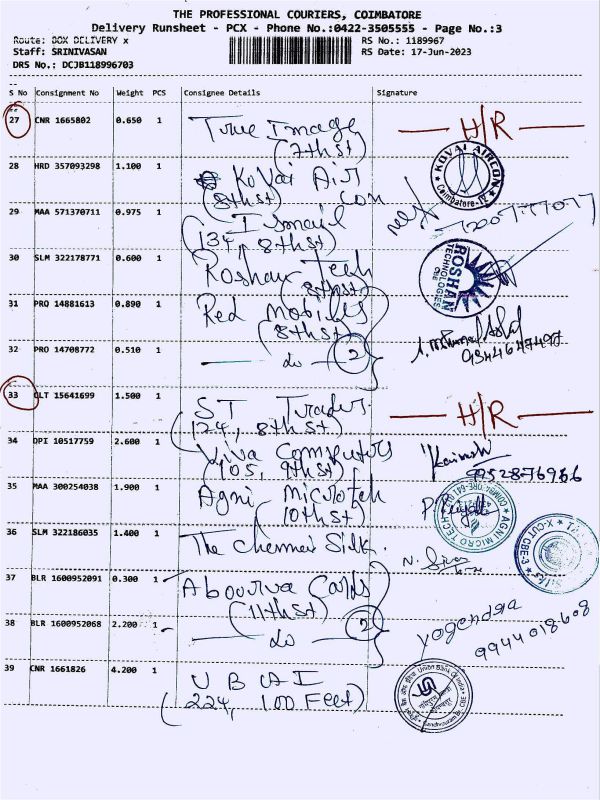 THE PROFESSIONAL COURIERS, COIMBATORE
Delivery Runsheet - PCX - Phone No.:0422-3505555 - Page No.:3
Route: BOX DELIVERY x
RS No.: 1189967
Staff: SRINIVASAN
RS Date: 17-Jun-2023
DRS No.: DCJB118996703
S No Consignment No Weight PCS Consignee Details Signature
27 CNR 1665802 0.650 1 True Image H/R
(7th st)
28 HRD 357093298 1.100 1 Kovai Air
(8th st) con
KOVAI AIRCON
Coimbatore-12
29 MAA 571370711 0.975 1 Ismail
(134, 8th st)
30 SLM 322178771 0.600 1 Roshan Tech
(8th st)
ROSHAN
TECHNOLOGIES
CBE
31 PRO 14881613 0.890 1 Red mobiles
(8th st)
32 PRO 14708772 0.510 1 do 2
33 CLT 15641699 1.500 1 ST Traders H/R
(124, 8th st)
34 OPI 10517759 2.600 1 Viva Computers
(105, 9th st)
35 MAA 300254038 1.900 1 Agni microtech
(10th st)
AGNI MICRO TECH
36 SLM 322186035 1.400 1 The Chennai Silk.
X-CUT CBE-3
37 BLR 1600952091 0.300 1 Aboorva Cards
(11th st)
38 BLR 1600952068 2.200 1 do 2
yogendra
9944018608
39 CNR 1661826 4.200 1 U B I
(224, 100 Feet)
Union Bank Of India